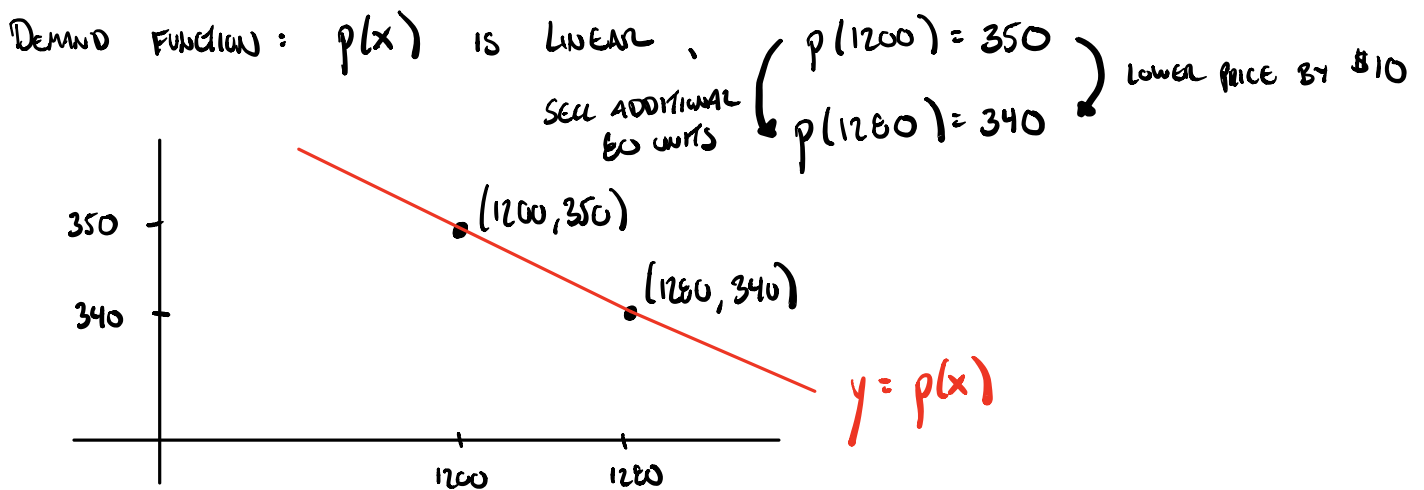 DEMAND FUNCTION: p(x) IS LINEAR, p(1200) = 350
LOWER PRICE BY $10
SELL ADDITIONAL
80 UNITS
p(1280) = 340
350
(1200, 350)
(1280, 340)
340
y = p(x)
1200 1280